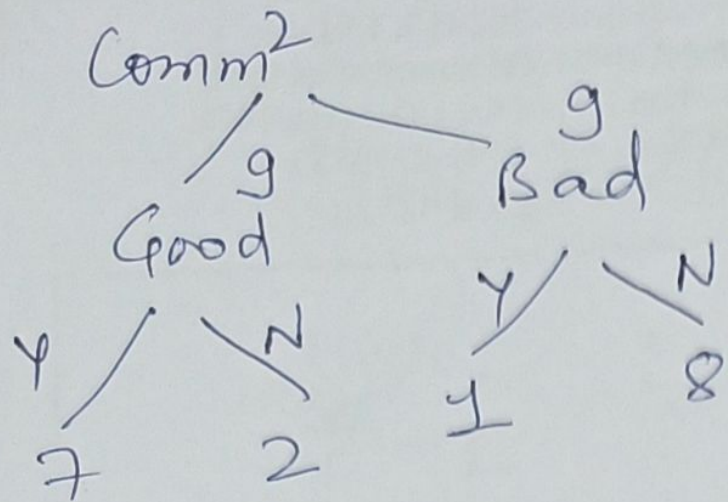 Comm²
9 9
Good Bad
Y N Y N
7 2 1 8